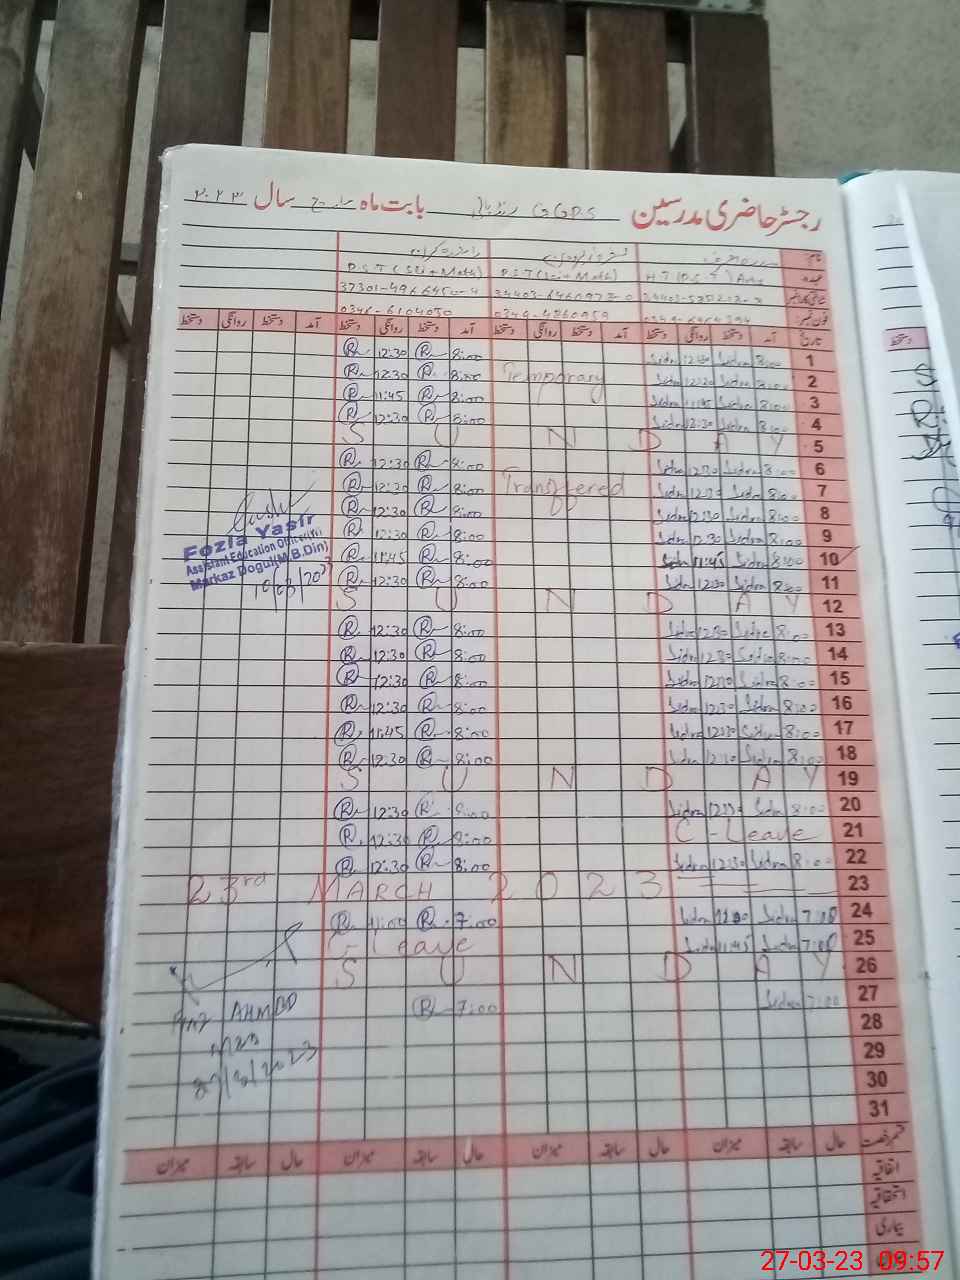 رجسٹر حاضری مدرسین GGPS بابت ماہ مارچ سال ۲۰۲۳
نام
عہدہ H T (P.S.T) Arts P.S.T (Sci + Math) P.S.T (Sci + Math)
فون نمبر 0348-6104030
تاریخ آمد دستخط روانگی دستخط آمد دستخط روانگی دستخط آمد دستخط روانگی دستخط آمد دستخط روانگی دستخط
1 8:00 Sidra 12:30 Sidra 8:00 R 12:30 R
2 8:00 Sidra 12:30 Sidra Temporary 8:00 R 12:30 R
3 8:00 Sidra 11:45 Sidra 8:00 R 11:45 R
4 8:00 Sidra 12:30 Sidra 8:00 R 12:30 R
5 S U N D A Y
6 8:00 Sidra 12:30 Sidra 8:00 R 12:30 R
7 8:00 Sidra 12:30 Sidra Transfered 8:00 R 12:30 R
8 8:00 Sidra 12:30 Sidra 8:00 R 12:30 R
9 8:00 Sidra 12:30 Sidra 8:00 R 12:30 R
10 8:00 Sidra 11:45 Sidra 8:00 R 11:45 R
11 8:00 Sidra 12:30 Sidra 8:00 R 12:30 R
12 S U N D A Y
13 8:00 Sidra 12:30 Sidra 8:00 R 12:30 R
14 8:00 Sidra 12:30 Sidra 8:00 R 12:30 R
15 8:00 Sidra 12:30 Sidra 8:00 R 12:30 R
16 8:00 Sidra 12:30 Sidra 8:00 R 12:30 R
17 8:00 Sidra 12:30 Sidra 8:00 R 11:45 R
18 8:00 Sidra 12:30 Sidra 8:00 R 12:30 R
19 S U N D A Y
20 8:00 Sidra 12:30 Sidra 8:00 R 12:30 R
21 C - Leave 8:00 R 12:30 R
22 8:00 Sidra 12:30 Sidra 8:00 R 12:30 R
23 23rd MARCH 2023
24 7:00 Sidra 12:00 Sidra 7:00 R 11:00 R
25 7:00 Sidra 11:45 Sidra C - Leave
26 S U N D A Y
27 7:00 Sidra 7:00 R
28
29
30
31
Fozia Yasir
Assistant Education Officer(W)
Markaz Dogul(M.B.Din)
10/03/2023
AHMED
27/3/2023
قسم رخصت حال سابقہ میزان حال سابقہ میزان حال سابقہ میزان حال سابقہ میزان
اتفاقیہ
استحقاقیہ
بیماری
دستخط
27-03-23 09:57